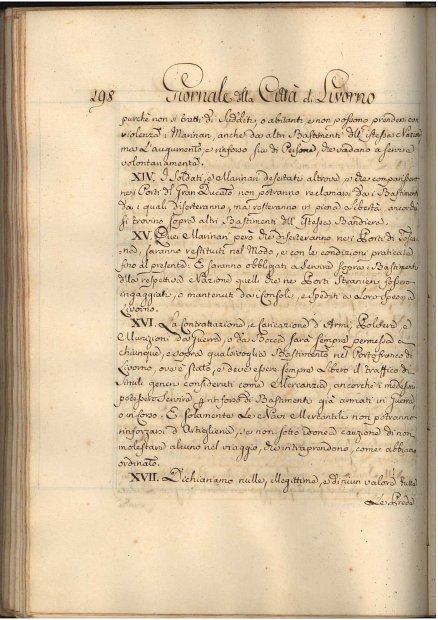 298 Giornale della Città di Livorno
purchè non si tratti di Sudditi, o abitanti e non possono prendersi con
violenza i Marinari anche da altri Bastimenti dell'istessa Nazio
ne. L'augumento e rinforzo sia di Persone, che vadano a servire
volontariamente.
XIV. I Soldati, e Marinari desertati altrove, e che compariscono
nei Porti di Gran Ducato non potranno reclamarsi dai Bastimenti
dai quali disertarono, ma resteranno in piena Libertà, ancorchè
si trovino sopra altri Bastimenti dell'istessa Bandiera.
XV. Quei Marinari però che diserteranno nei Porti di Tosca
na, saranno restituiti nel Modo, e con le condizioni praticate
fino al presente: E saranno obbligati a Servire sopra i Bastimenti
della respettiva Nazione quelli che nei Porti Stranieri fossero
ingaggiati, o mantenuti dai Consoli, e spediti a Loro spese a
Livorno.
XVI. La contrattazione, e caricazione d'Armi, Polvere e
Munizioni da Guerra, o da Bocca sarà sempre permessa a
chiunque, e sopra qualsivoglia Bastimento nel Portofranco di
Livorno, ove è stato, e deve essere sempre Libero il traffico di
simili generi considerati come Mercanzia, ancorchè i medesimi
potessero Servire per rinforzo di Bastimenti già armati in Guerra
o in Corso. E solamente Le Navi Mercantili non potranno
rinforzarsi d'Artiglieria, se non sotto idonea cauzione di non
molestare alcuno nel viaggio, che intraprendono, come abbiamo
ordinato.
XVII. Dichiariamo nulle, illegittime, e di niun valore tutte
Le Prede